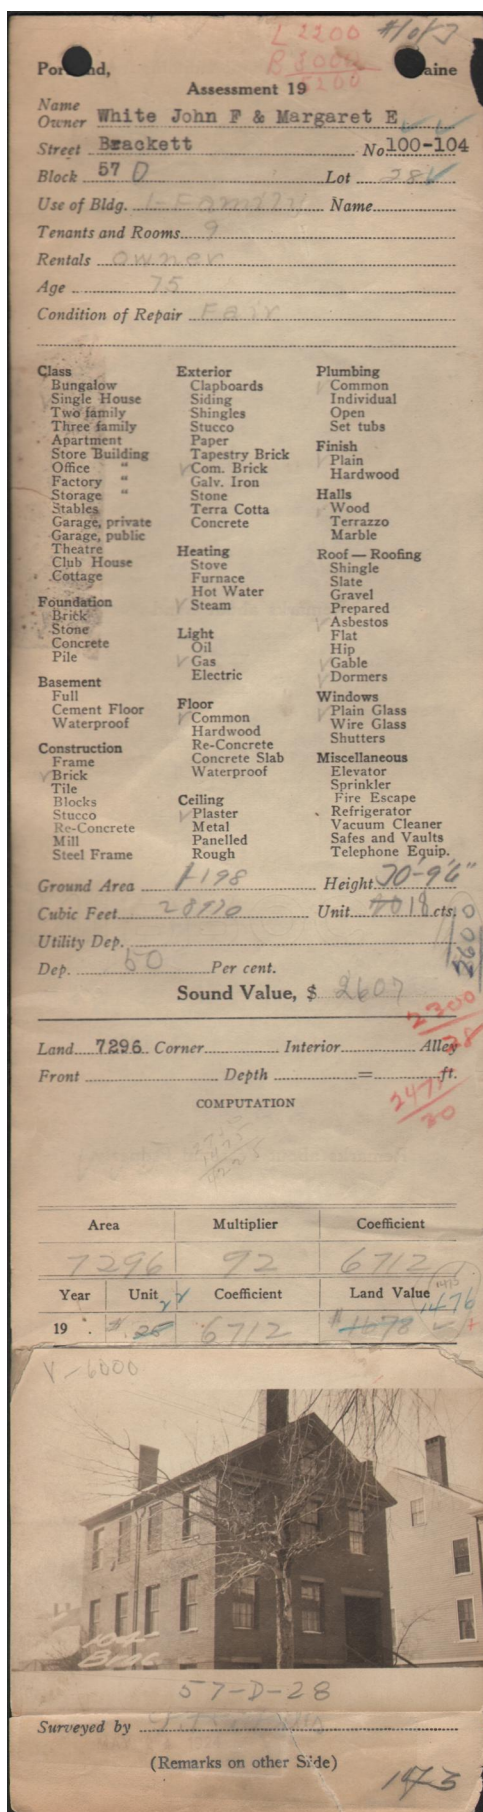 L 2200 #1 of 3
B 3000
5200
Portland, Maine
Assessment 19
Name
Owner White John F & Margaret E
Street Brackett No 100-104
Block 57 D Lot 28
Use of Bldg. 1-Family Name
Tenants and Rooms 9
Rentals owner
Age 75
Condition of Repair Fair
Class
Bungalow
Single House
Two family
Three family
Apartment
Store Building
Office "
Factory "
Storage "
Stables
Garage, private
Garage, public
Theatre
Club House
Cottage
Foundation
Brick
Stone
Concrete
Pile
Basement
Full
Cement Floor
Waterproof
Construction
Frame
Brick
Tile
Blocks
Stucco
Re-Concrete
Mill
Steel Frame
Exterior
Clapboards
Siding
Shingles
Stucco
Paper
Tapestry Brick
Com. Brick
Galv. Iron
Stone
Terra Cotta
Concrete
Heating
Stove
Furnace
Hot Water
Steam
Light
Oil
Gas
Electric
Floor
Common
Hardwood
Re-Concrete
Concrete Slab
Waterproof
Ceiling
Plaster
Metal
Panelled
Rough
Plumbing
Common
Individual
Open
Set tubs
Finish
Plain
Hardwood
Halls
Wood
Terrazzo
Marble
Roof — Roofing
Shingle
Slate
Gravel
Prepared
Asbestos
Flat
Hip
Gable
Dormers
Windows
Plain Glass
Wire Glass
Shutters
Miscellaneous
Elevator
Sprinkler
Fire Escape
Refrigerator
Vacuum Cleaner
Safes and Vaults
Telephone Equip.
Ground Area 1198 Height 30'-9'6"
Cubic Feet 28970 Unit 18 cts.
Utility Dep.
2600
Dep. 50 Per cent.
Sound Value, $ 2607
2300
28
Land 7296 Corner Interior Alley
Front Depth = ft.
2477
30
COMPUTATION
Area Multiplier Coefficient
7296 92 6712
Year Unit 22 Coefficient Land Value 1476
19 $ .25 6712 $ 1678
V-6000
104
Brac
57-D-28
Surveyed by
(Remarks on other Side)
1473